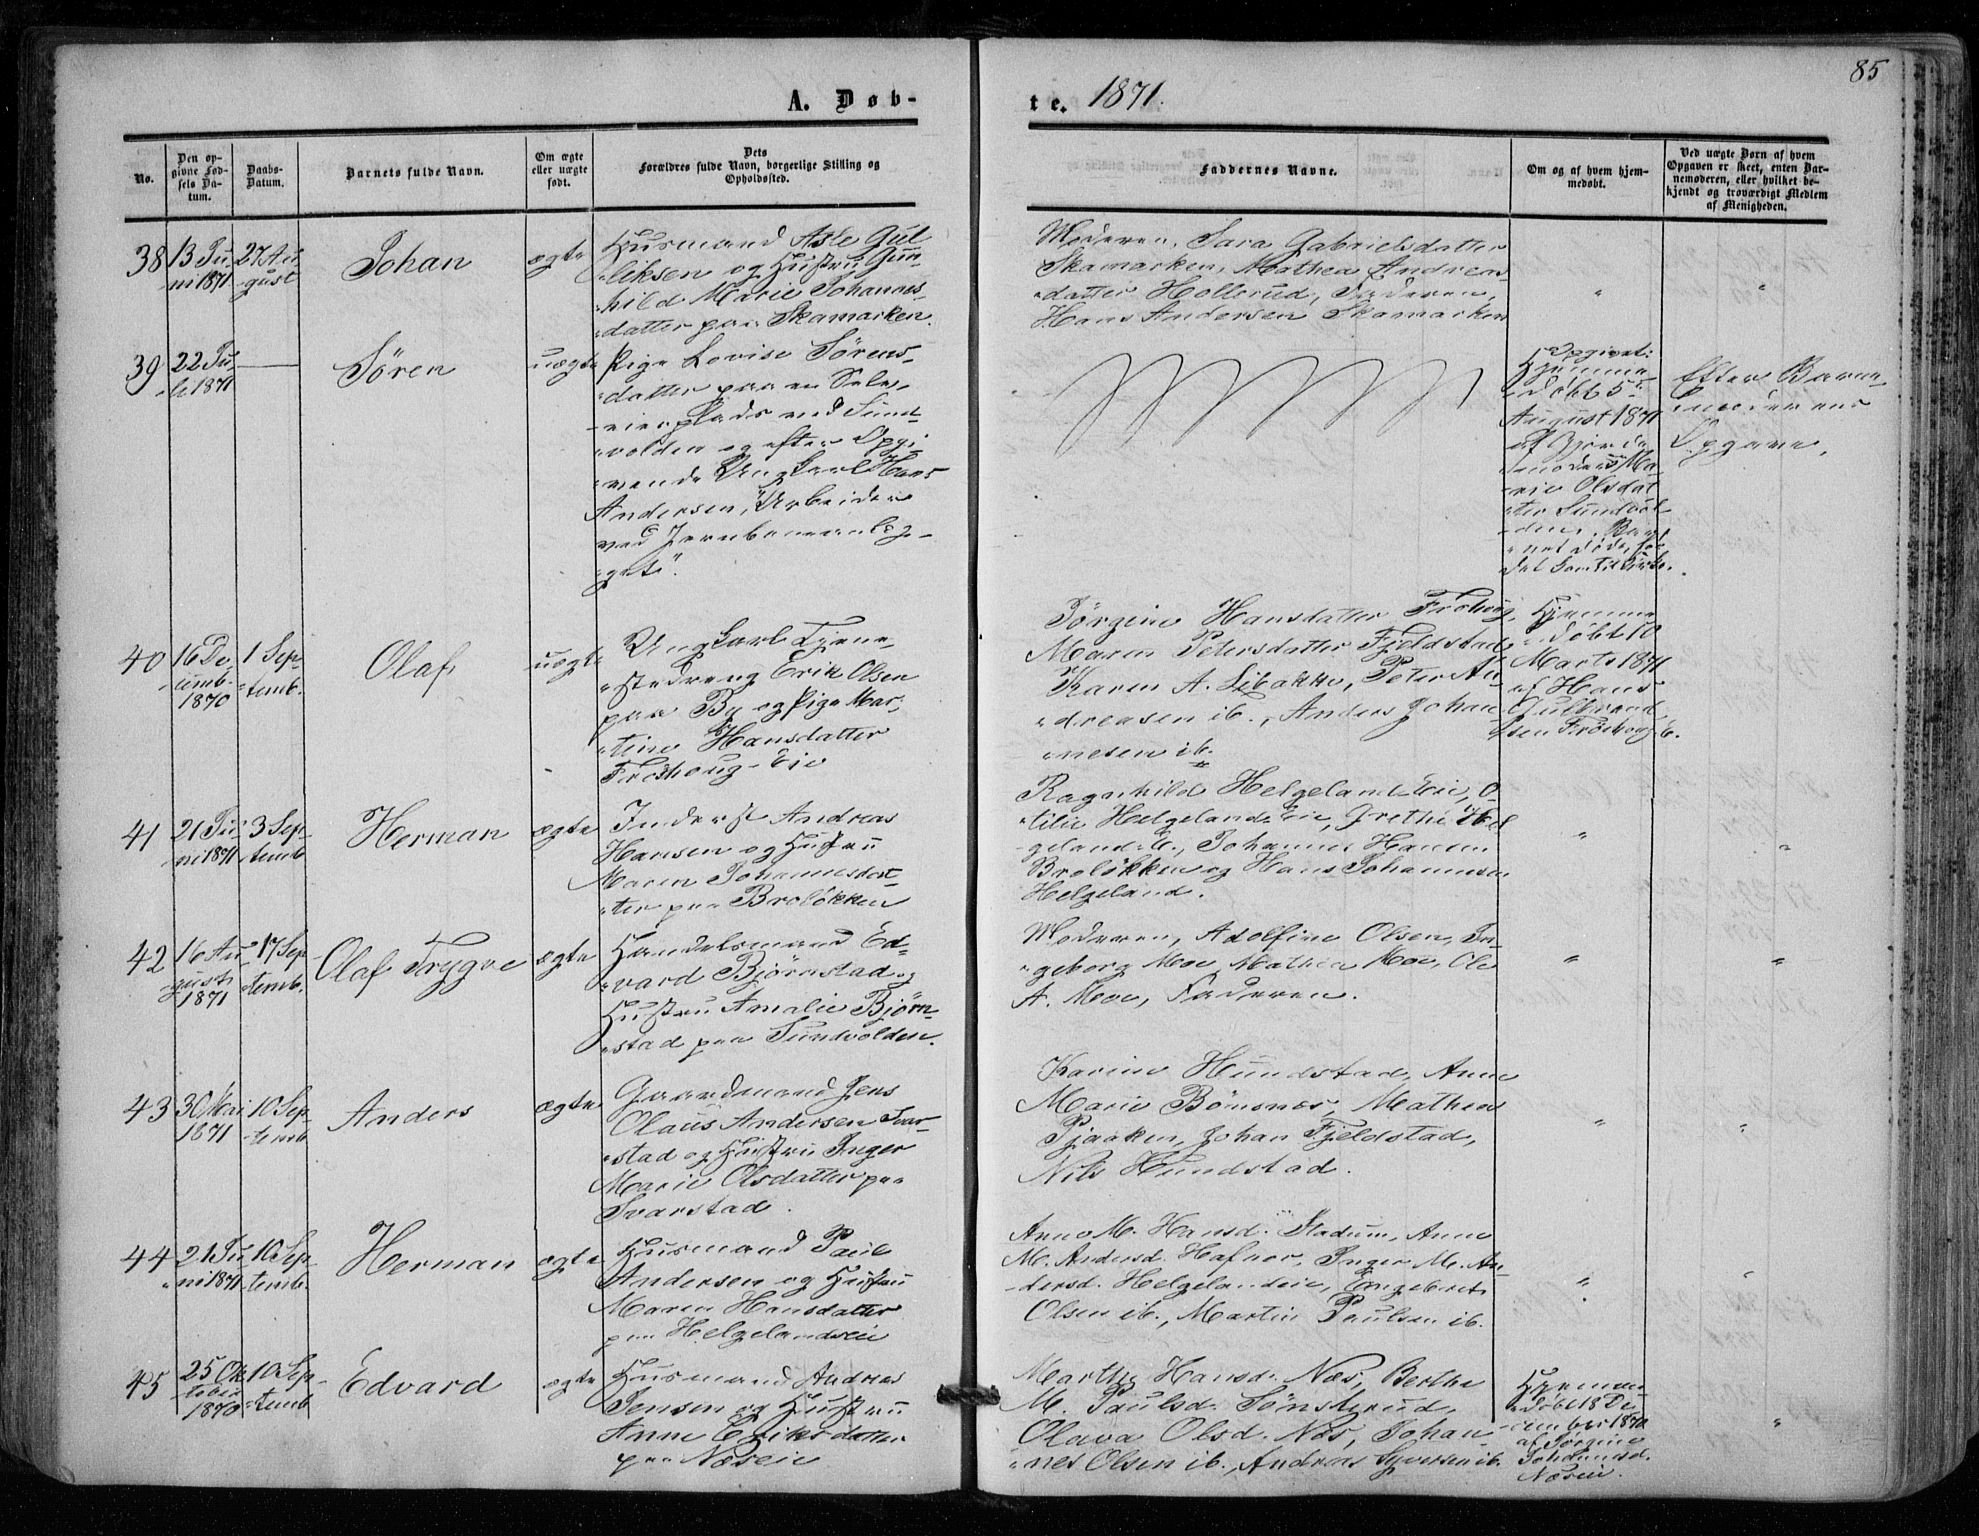 A. Døb-
te. 1871.
85
No.
Den op-
givne Fød-
sels Da-
tum.
Daabs-
Datum.
Barnets fulde Navn.
Om ægte
eller uægte
født.
Dets
Forældres fulde Navn, borgerlige Stilling og
Opholdssted.
Faddernes Navne.
Om og af hvem hjem-
medøbt.
Ved uægte Børn af hvem
Opgaven er skeet, enten Bar-
nemoderen, eller hvilket be-
kjendt og troværdigt Medlem
af Menigheden.
38
13 Ju-
ni 1871
27 Au-
gust
Johan
ægte
Husmand Asle Gul
liksen og Hustru Gun
hild Marie Johannes-
datter paa Skamarken.
Moderen, Sara Gabrielsdatter
Skamarken, Mathea Andreas
datter Hollerud, Faderen,
Hans Andersen Skamarken
"
"
39
22 Ju-
li 1871
Søren
uægte
Pige Lovise Sørens-
datter paa en Selv-
eierplads ved Sund-
volden og efter Opgi-
vende Ungkarl Hans
Andersen, "Arbeider
ved Jernbaneanlæg-
get".
Opgivet:
Hjemme-
døbt 5
August 1871
af Gjorde-
moder Ma-
rie Olsdat
ter Sundvol-
den. Bar-
net døde, før
det kom til Kirke.
Efter Barne-
moderens
Opgave.
40
16 De-
cemb.
1870
1 Sep-
temb.
Olaf
uægte
Ungkarl Tjene-
stedreng Erik Olsen
paa By og Pige Mar-
tine Hansdatter
Frøshoug-Eie
Jørgine Hansdatter Frøhoug,
Maren Petersdatter Fjeldstad
Karen A. Libakke, Peter An-
dreasen ib., Anders Johan-
nesen ib.
Hjemme
døbt 10
Marts 1871
af Hans
Gulbrand
sen Frøshoug E.
41
21 Ju-
ni 1871
3 Sep-
temb
Herman
ægte
Inderst Andreas
Hansen og Hustru
Maren Johannesdat-
ter paa Broløkken
Ragnhild Helgelands Eie, O-
tilie Helgelands Eie, Grethe Hel
geland E., Johannes Hansen
Broløkken og Hans Johannesen
Helgeland.
"
"
42
16 Au-
gust
1871
17 Sep-
temb.
Olaf Trygve
ægte
Handelsmand Ed-
vard Bjørnstad og
Hustru Amalie Bjørn-
stad paa Sundvolden.
Moderen, Adolfine Olsen, In-
geborg Moe, Mathea Moe, Ole
A. Moe, Faderen.
"
"
43
30 Mai
1871
10 Sep-
temb
Anders
ægte
Gaardmand Jens
Olaus Andersen Svar-
stad og Hustru Inger
Marie Olsdatter paa
Svarstad.
Karine Hundstad, Anne
Marie Bønsnæs, Mathea
Pjaaken, Johan Fjeldstad,
Nils Hundstad.
"
"
44
21 Ju-
ni 1871
10 Sep-
temb.
Herman
ægte
Husmand Paul
Andersen og Hustru
Maren Hansdatter
paa Helgelandseie
Anne M. Hansd. Stadum, Anne
M. Andersd. Hafnor, Inger M. An-
dersd. Helgelandeie, Engebret
Olsen ib., Martin Paulsen ib.
"
"
45
25 Ok-
tober
1870
10 Sep-
temb
Edvard
ægte
Husmand Andreas
Jensen og Hustru
Anne Eriksdatter
paa Næseie
Marthe Hansd. Næs, Berthe
M. Paulsd. Sønsterud,
Olava Olsd. Næs, Johan-
nes Olsen ib., Andreas Syversen ib.
Hjemme-
døbt 18 De-
cember 1870
af Jørgine
Johannesd.
Næseie.
"